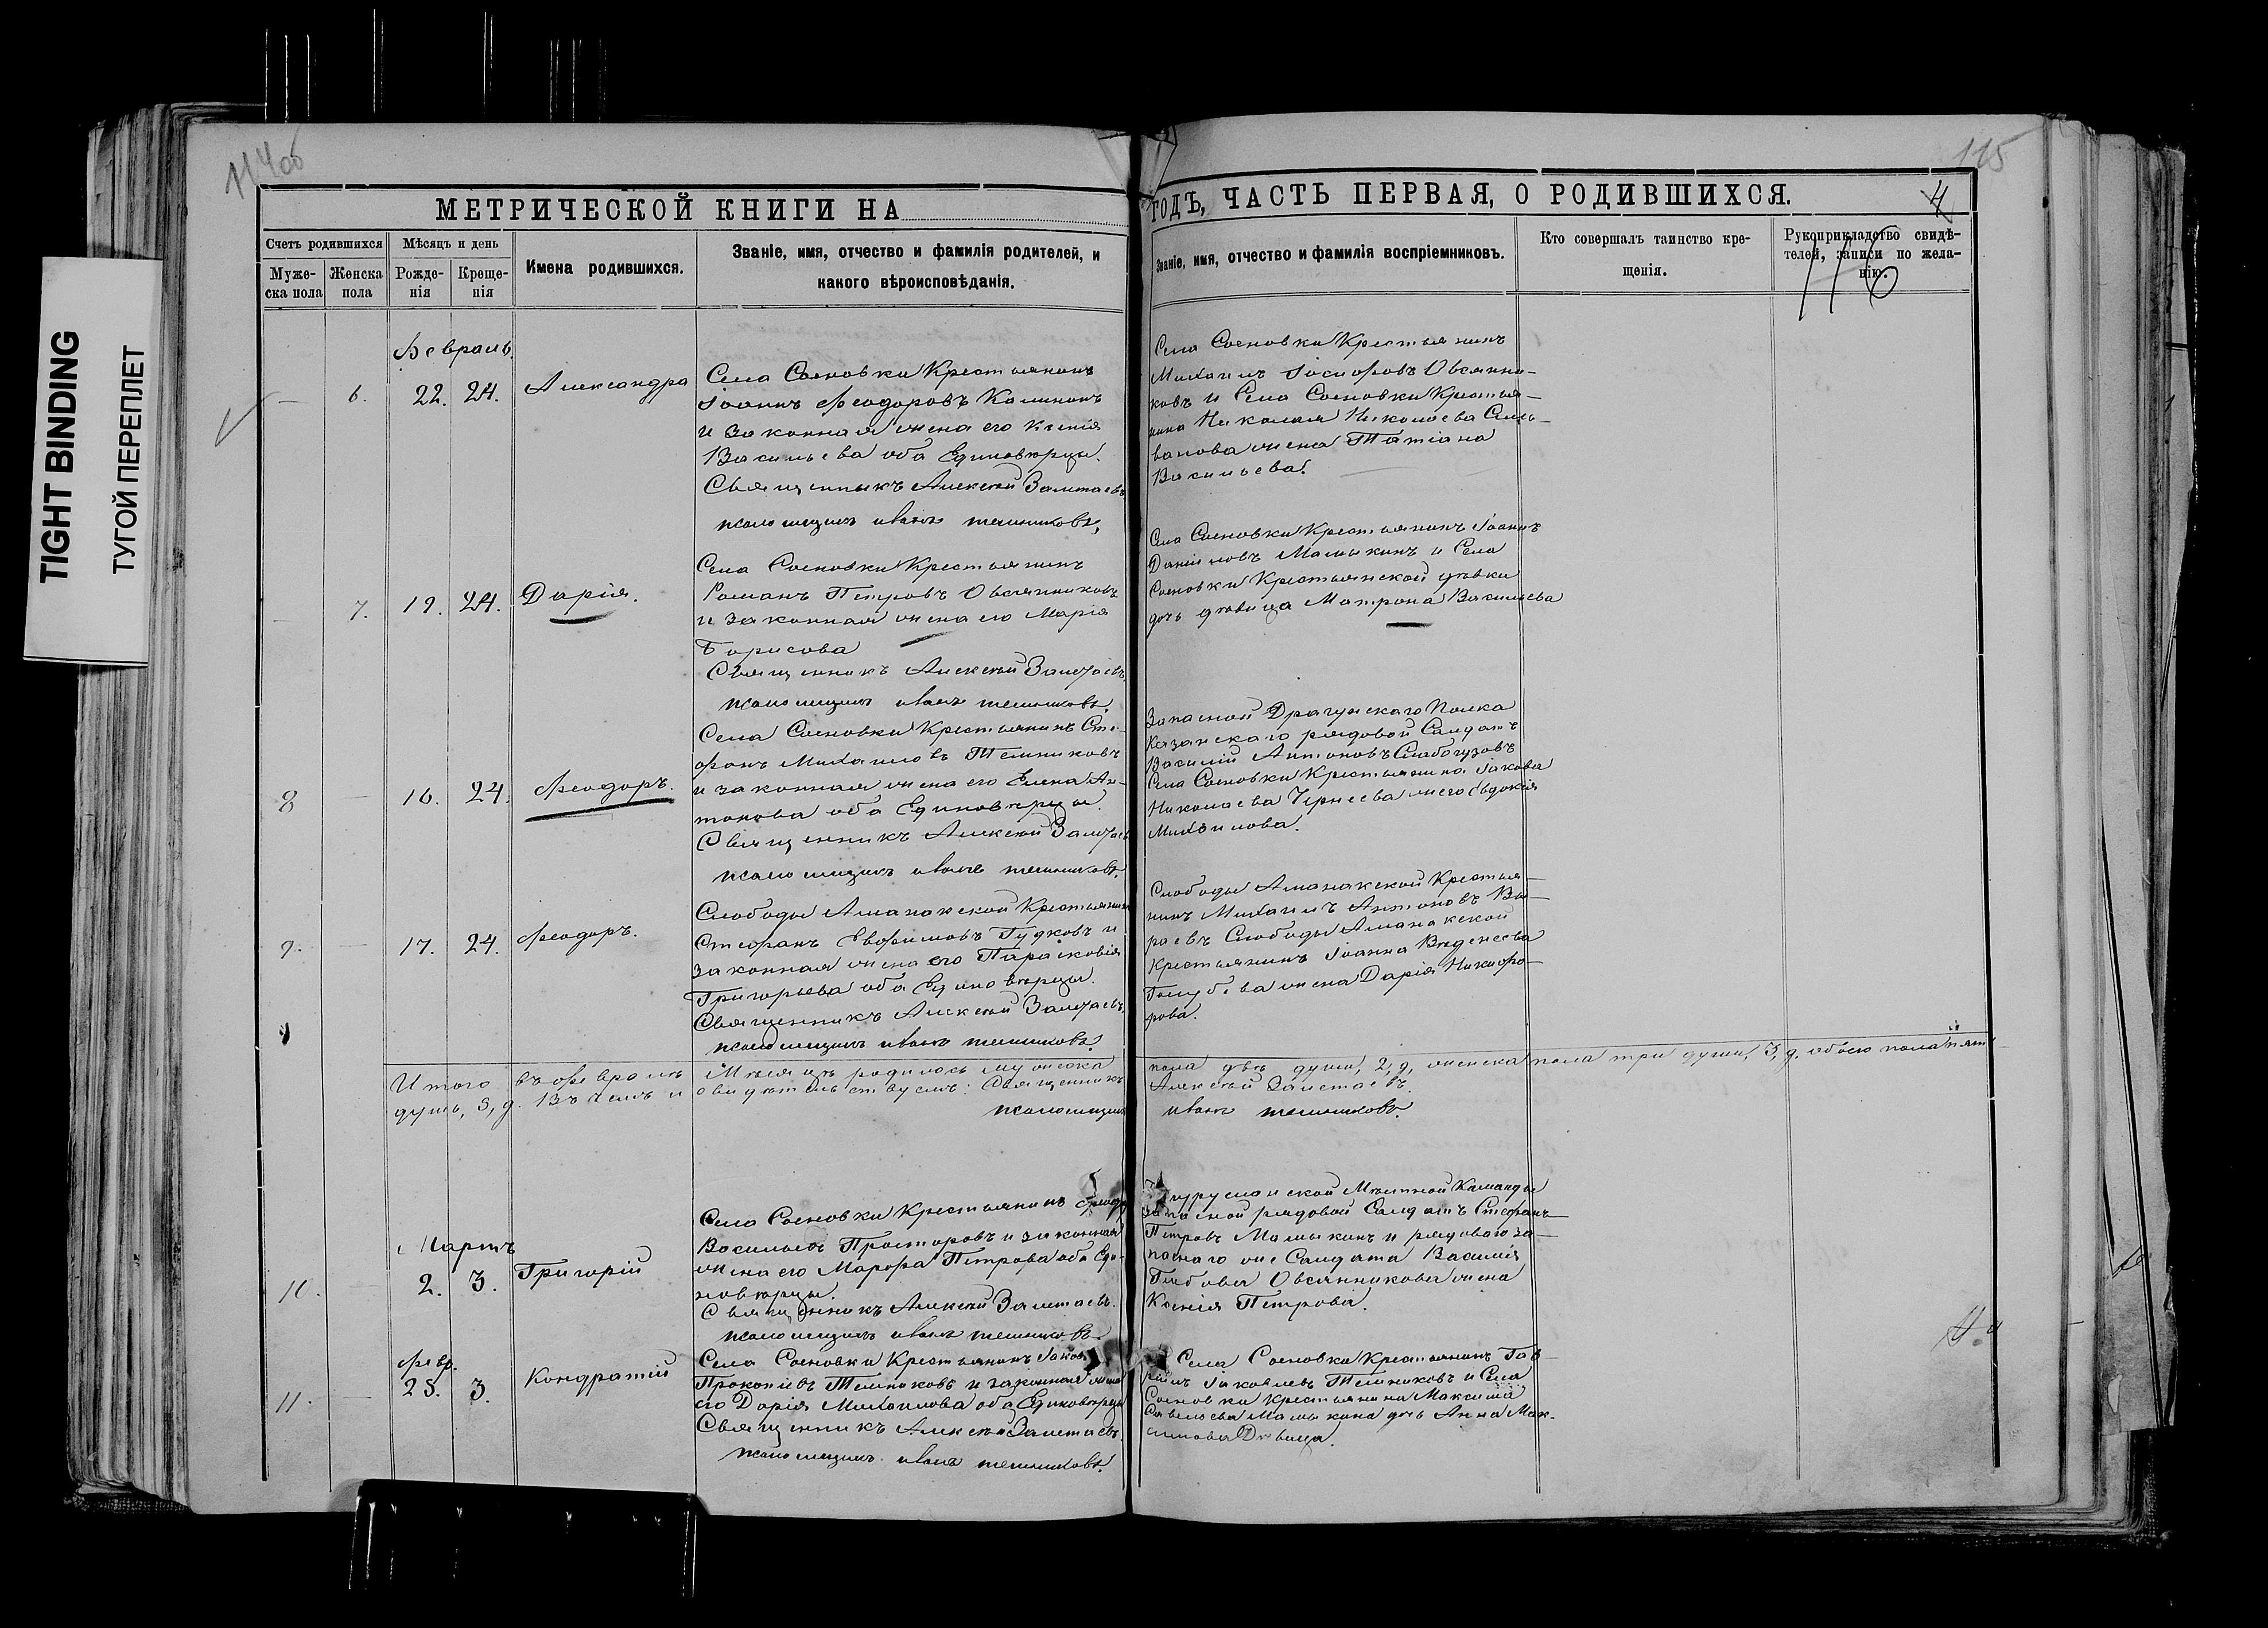 114об
115
TIGHT BINDING
ТУГОЙ ПЕРЕПЛЕТ
МЕТРИЧЕСКОЙ КНИГИ НА
ГОДЪ, ЧАСТЬ ПЕРВАЯ, О РОДИВШИХСЯ.
4
116
Счетъ родившихся
Мѣсяцъ и день
Имена родившихся.
Званіе, имя, отчество и фамилія родителей, и
какого вѣроисповѣданія.
Муже-
ска пола
Женска
пола
Рожде-
нія
Креще-
нія
Званіе, имя, отчество и фамилія воспріемниковъ.
Кто совершалъ таинство кре-
щенія.
Рукоприкладство свидѣ-
телей, записи по жела-
нію.
Февраль.
6. 22. 24. Александра
Села Сосновки Крестьянинъ
Іоаннъ Феодоровъ Калининъ
и законная жена его Ксенія
Васильева оба Единовѣрцы.
Священникъ Алексѣй Залетаевъ
псаломщикъ иванъ темниковъ,
Села Сосновки Крестьянинъ
Михаилъ Іосифовъ Овсянни-
ковъ и Села Сосновки Крестья-
нина Николая Николаева Сели-
ванова жена Татіана
Васильева.
7. 19. 24. Дарія.
Села Сосновки Крестьянинъ
Романъ Петровъ Овсянниковъ
и законная жена его Марія
Борисова
Священникъ Алексѣй Залетаевъ.
псаломщикъ иванъ темниковъ.
Села Сосновки Крестьянинъ Іоаннъ
Даніиловъ Мамыкинъ и Села
Сосновки Крестьянской дѣвки
дочь дѣвица Матрона Васильева
8 16. 24. Феодоръ.
Села Сосновки Крестьянинъ Сте-
фанъ Михаиловъ Темниковъ
и законная жена его Елена Ан-
тонова оба Единовѣрцы.
Священникъ Алексѣй Залетаевъ
псаломщикъ иванъ темниковъ.
Запасной Драгунскаго Полка
Казанскаго рядовой Салдатъ
Василій Антоновъ Слабогузовъ
Села Сосновки Крестьянина Іакова
Николаева Чернеева жена Евдокія
Михаилова.
9. 17. 24. Феодоръ.
Слободы Аманакской Крестьянинъ
Стефанъ Евфимовъ Гудковъ и
законная жена его Парасковія
Григорьева оба Единовѣрцы.
Священникъ Алексѣй Залетаевъ.
псаломщикъ иванъ темниковъ.
Слободы Аманакской Крестья-
нинъ Михаилъ Антоновъ
Слободы Аманакской
Крестьянинъ Іоанна
Голубева жена Дарія Никифо-
рова.
Итого въ февралѣ Мѣсяцѣ родилось мужска пола двѣ души, 2, д, женска пола три души, 3, д. обоего пола пять
душъ, 5, д. Въ чемъ и свидѣтельствуемъ: Священникъ Алексѣй Залетаевъ.
псаломщикъ иванъ темниковъ.
Мартъ
10. 2. 3. Григорій
Села Сосновки Крестьянинъ
Васильевъ Просторовъ и законная
жена его Марфа Петрова оба Еди-
новѣрцы.
Священникъ Алексѣй Залетаевъ.
псаломщикъ иванъ темниковъ.
Мѣстной Каманды
запасной рядовой Салдатъ Стефанъ
Петровъ Мамыкинъ и рядового за-
паснаго же Салдата Василія
Глебова Овсянникова жена
Ксенія Петрова.
февр.
11. 25. 3. Кондратій
Села Сосновки Крестьянинъ Іаковъ
Прокопіевъ Темниковъ и законная жена
его Дарія Михаилова оба Единовѣрцы
Священникъ Алексѣй Залетаевъ.
псаломщикъ иванъ темниковъ.
Села Сосновки Крестьянинъ Гав-
риилъ Іаковлевъ Темниковъ и Села
Сосновки Крестьянина Максима
Савельева Мамыкина дочь Анна Мак-
симова Дѣвица.